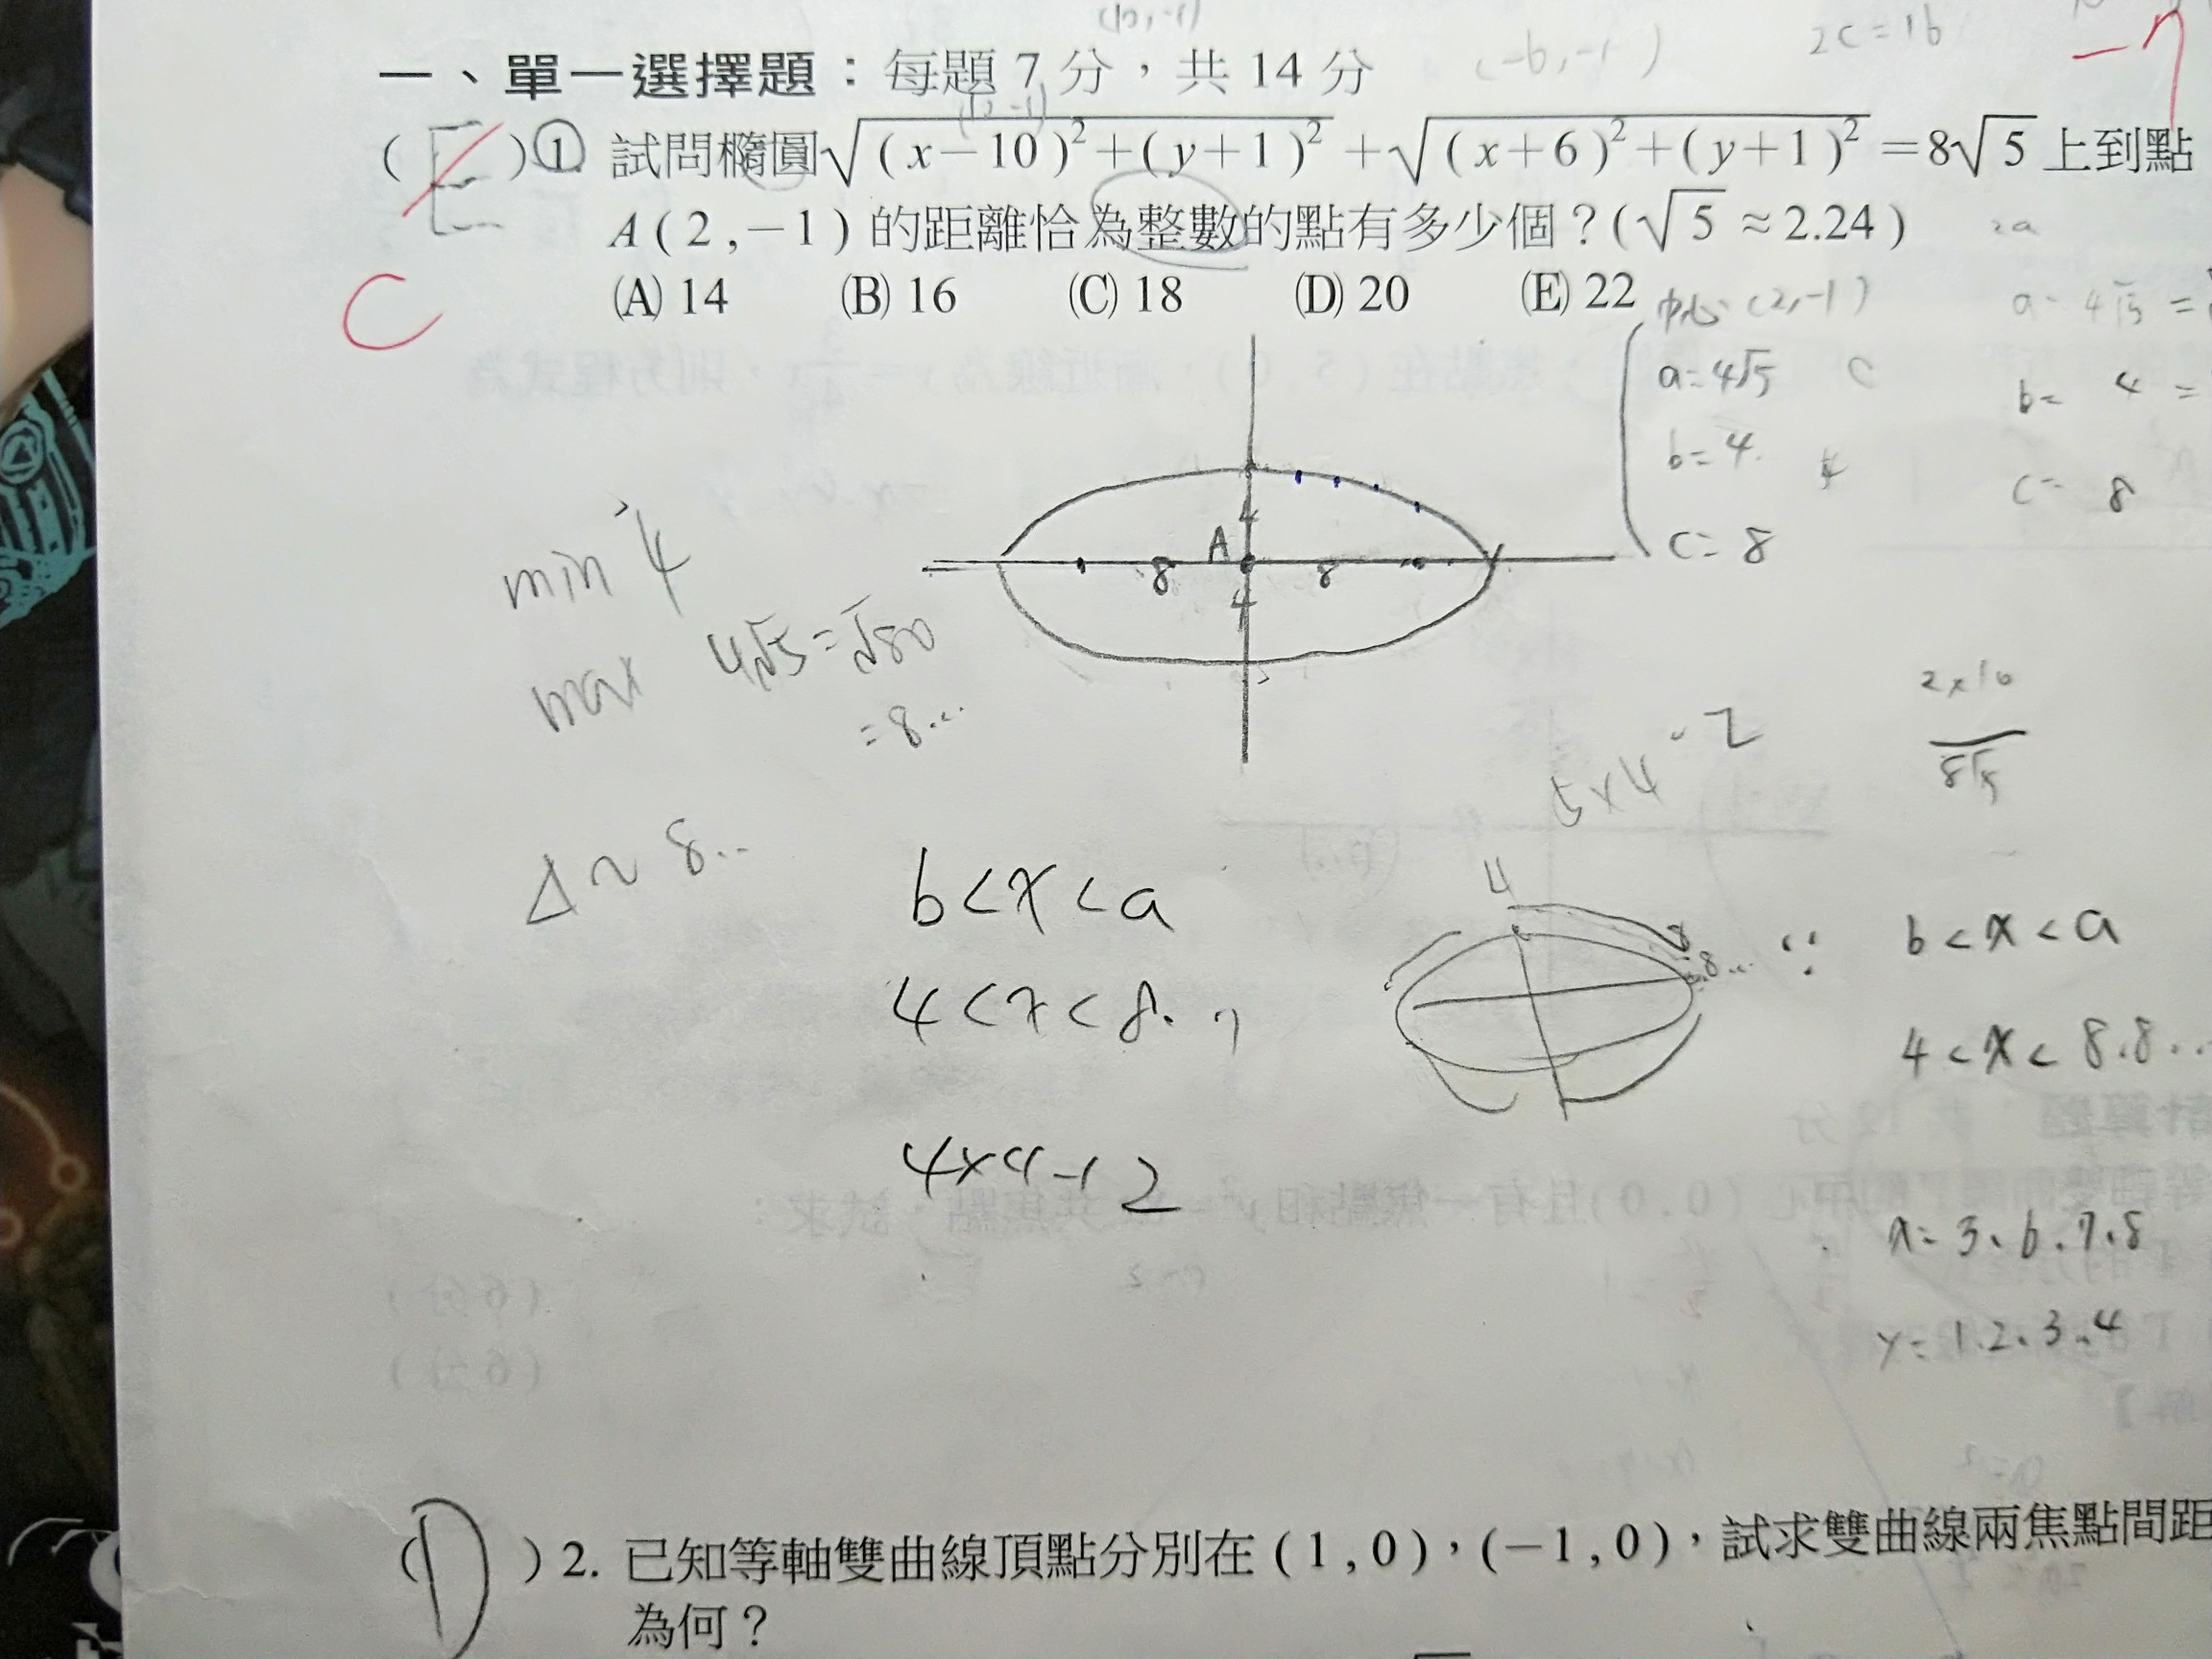 (10,-1)
(-6,-1)
2c=16
-7
一、單一選擇題：每題 7 分，共 14 分
( E )①. 試問橢圓√(x-10)²+(y+1)² + √(x+6)²+(y+1)² =8√5 上到點
A(2,-1)的距離恰為整數的點有多少個？(√5≈2.24)
2a
C
(A) 14 (B) 16 (C) 18 (D) 20 (E) 22
中心(2,-1)
a=4√5
b=4
c=8
a=4√5=
b=4=
c=8
A
4
8 8
4
min 4
max 4√5=√80
=8...
8...
5×4-2
2×16
b<x<a
4<x<8.
4×4+2
4
8
8.8...
∵ b<x<a
4<x<8.8...
x=5、6、7、8
y=1.2、3、4
( D )2. 已知等軸雙曲線頂點分別在(1,0)，(-1,0)，試求雙曲線兩焦點間距
為何？